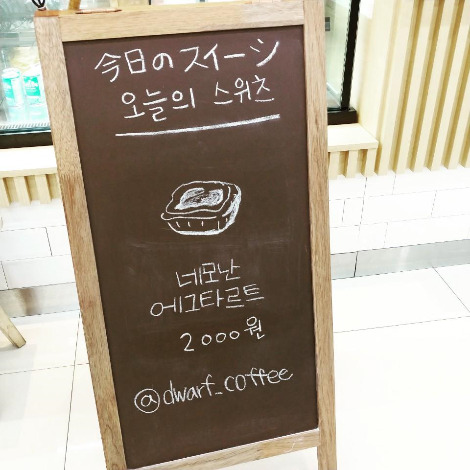 今日のスイーツ
오늘의 스위츠
네모난
에그타르트
2000원
@dwarf_coffee